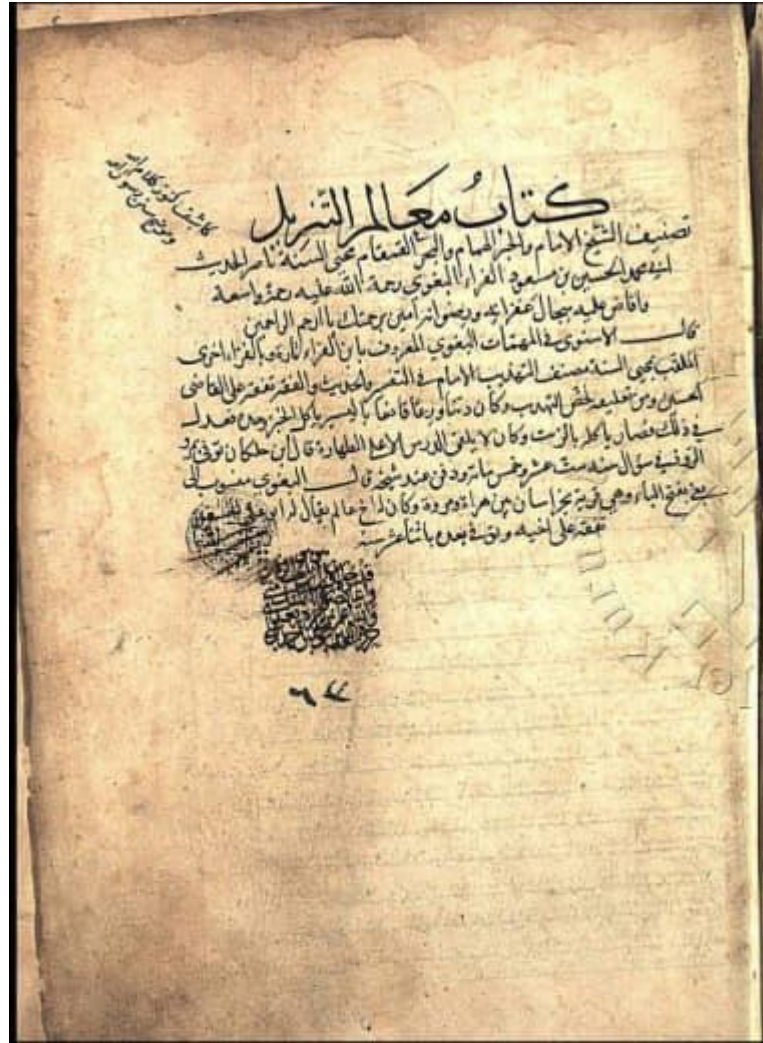 كاشف كنوز كلام الله
وموضح سنن رسول الله
كتاب معالم التنزيل
تصنيف الشيخ الامام والحبر الهمام والبحر القمقام محيى السنة ناصر الحديث
ابي محمد الحسين بن مسعود الفراء البغوي رحمة الله عليه رحمة واسعة
وافاض عليه سجال غفرانه ورضوانه آمين برحمتك يا ارحم الراحمين
قال الاسنوى في المهمات البغوي المعروف بابن الفراء تارة وبالفراء اخرى
الملقب بمحيى السنة مصنف التهذيب الامام في التفسير والحديث والفقه تفقه على القاضى
الحسين ومن تعليقه لخص التهذيب وكان دينا ورعا قانعا باليسير ياكل الخبز وحده فعدل
في ذلك فصار ياكله بالزيت وكان لا يلقى الدرس الا على الطهارة قال ابن خلكان توفى بمرو
الروذ في شوال سنة ست عشر وخمس مائة ودفن عند شيخه قال البغوي منسوب الى
بغ بفتح الباء وهي قرية بخراسان بين هراة ومرو وكان له اخ عالم يقال له ابو على
تفقه على اخيه وتوفى بعده باثنا عشر سنة